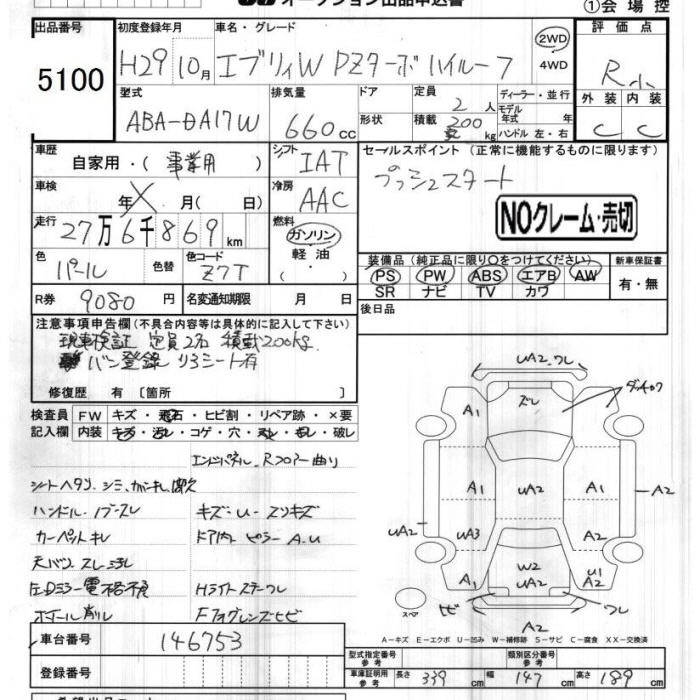 オークション出品申込書
①会場控
出品番号 初度登録年月 車名・グレード 評価点
5100 H29 10月 エブリィW PZターボ ハイルーフ 2WD 4WD R小
外装 内装
C C
型式 排気量 ドア 定員 ディーラー・並行
ABA-DA17W 660cc 2人 モデル年式 年
形状 積載 200 kg ハンドル 左・右
車歴 シフト セールスポイント (正常に機能するものに限ります)
自家用・(事業用) IAT プッシュスタート
車検 年 月( 日) 冷房 AAC
NOクレーム・売切
走行 27万6千869km 燃料 ガソリン 軽油 ( )
装備品 (純正品に限り○をつけてください) 新車保証書
PS PW ABS エアB AW 有・無
SR ナビ TV カワ
色 パール 色替 色コード Z7T
R券 9080円 名変通知期限 月 日
後日品
注意事項申告欄(不具合内容等は具体的に記入して下さい)
現車検証 定員2名 積載200kg
バン登録 リヤシート有
修復歴 有 〔箇所 〕
検査員記入欄 FW キズ・飛石・ヒビ割・リペア跡・×要
内装 キズ・汚レ・コゲ・穴・スレ・キレ・破レ
エンドパネル、Rフロアー曲り
シートヘタリ、シミ、
ハンドル・ノブスレ キズ・U・スリキズ
カーペットキレ ドア内 ピラーA.U
天バリスレ
Hライトステーワレ
ホイール削レ Fフォグレンズヒビ
車台番号 146753
登録番号
UA2 ワレ
ズレ
A1
A1 UA2 A1 A2
UA2 UA3 A2
W2
UA2
A1 U1
ヒビ ワレ
A2
スペア
A−キズ E−エクボ U−凹み W−補修跡 S−サビ C−腐食 XX−交換済
型式指定番号 参考 類別区分番号 参考
車庫証明用 参考 長さ 339cm 幅 147cm 高さ 189cm